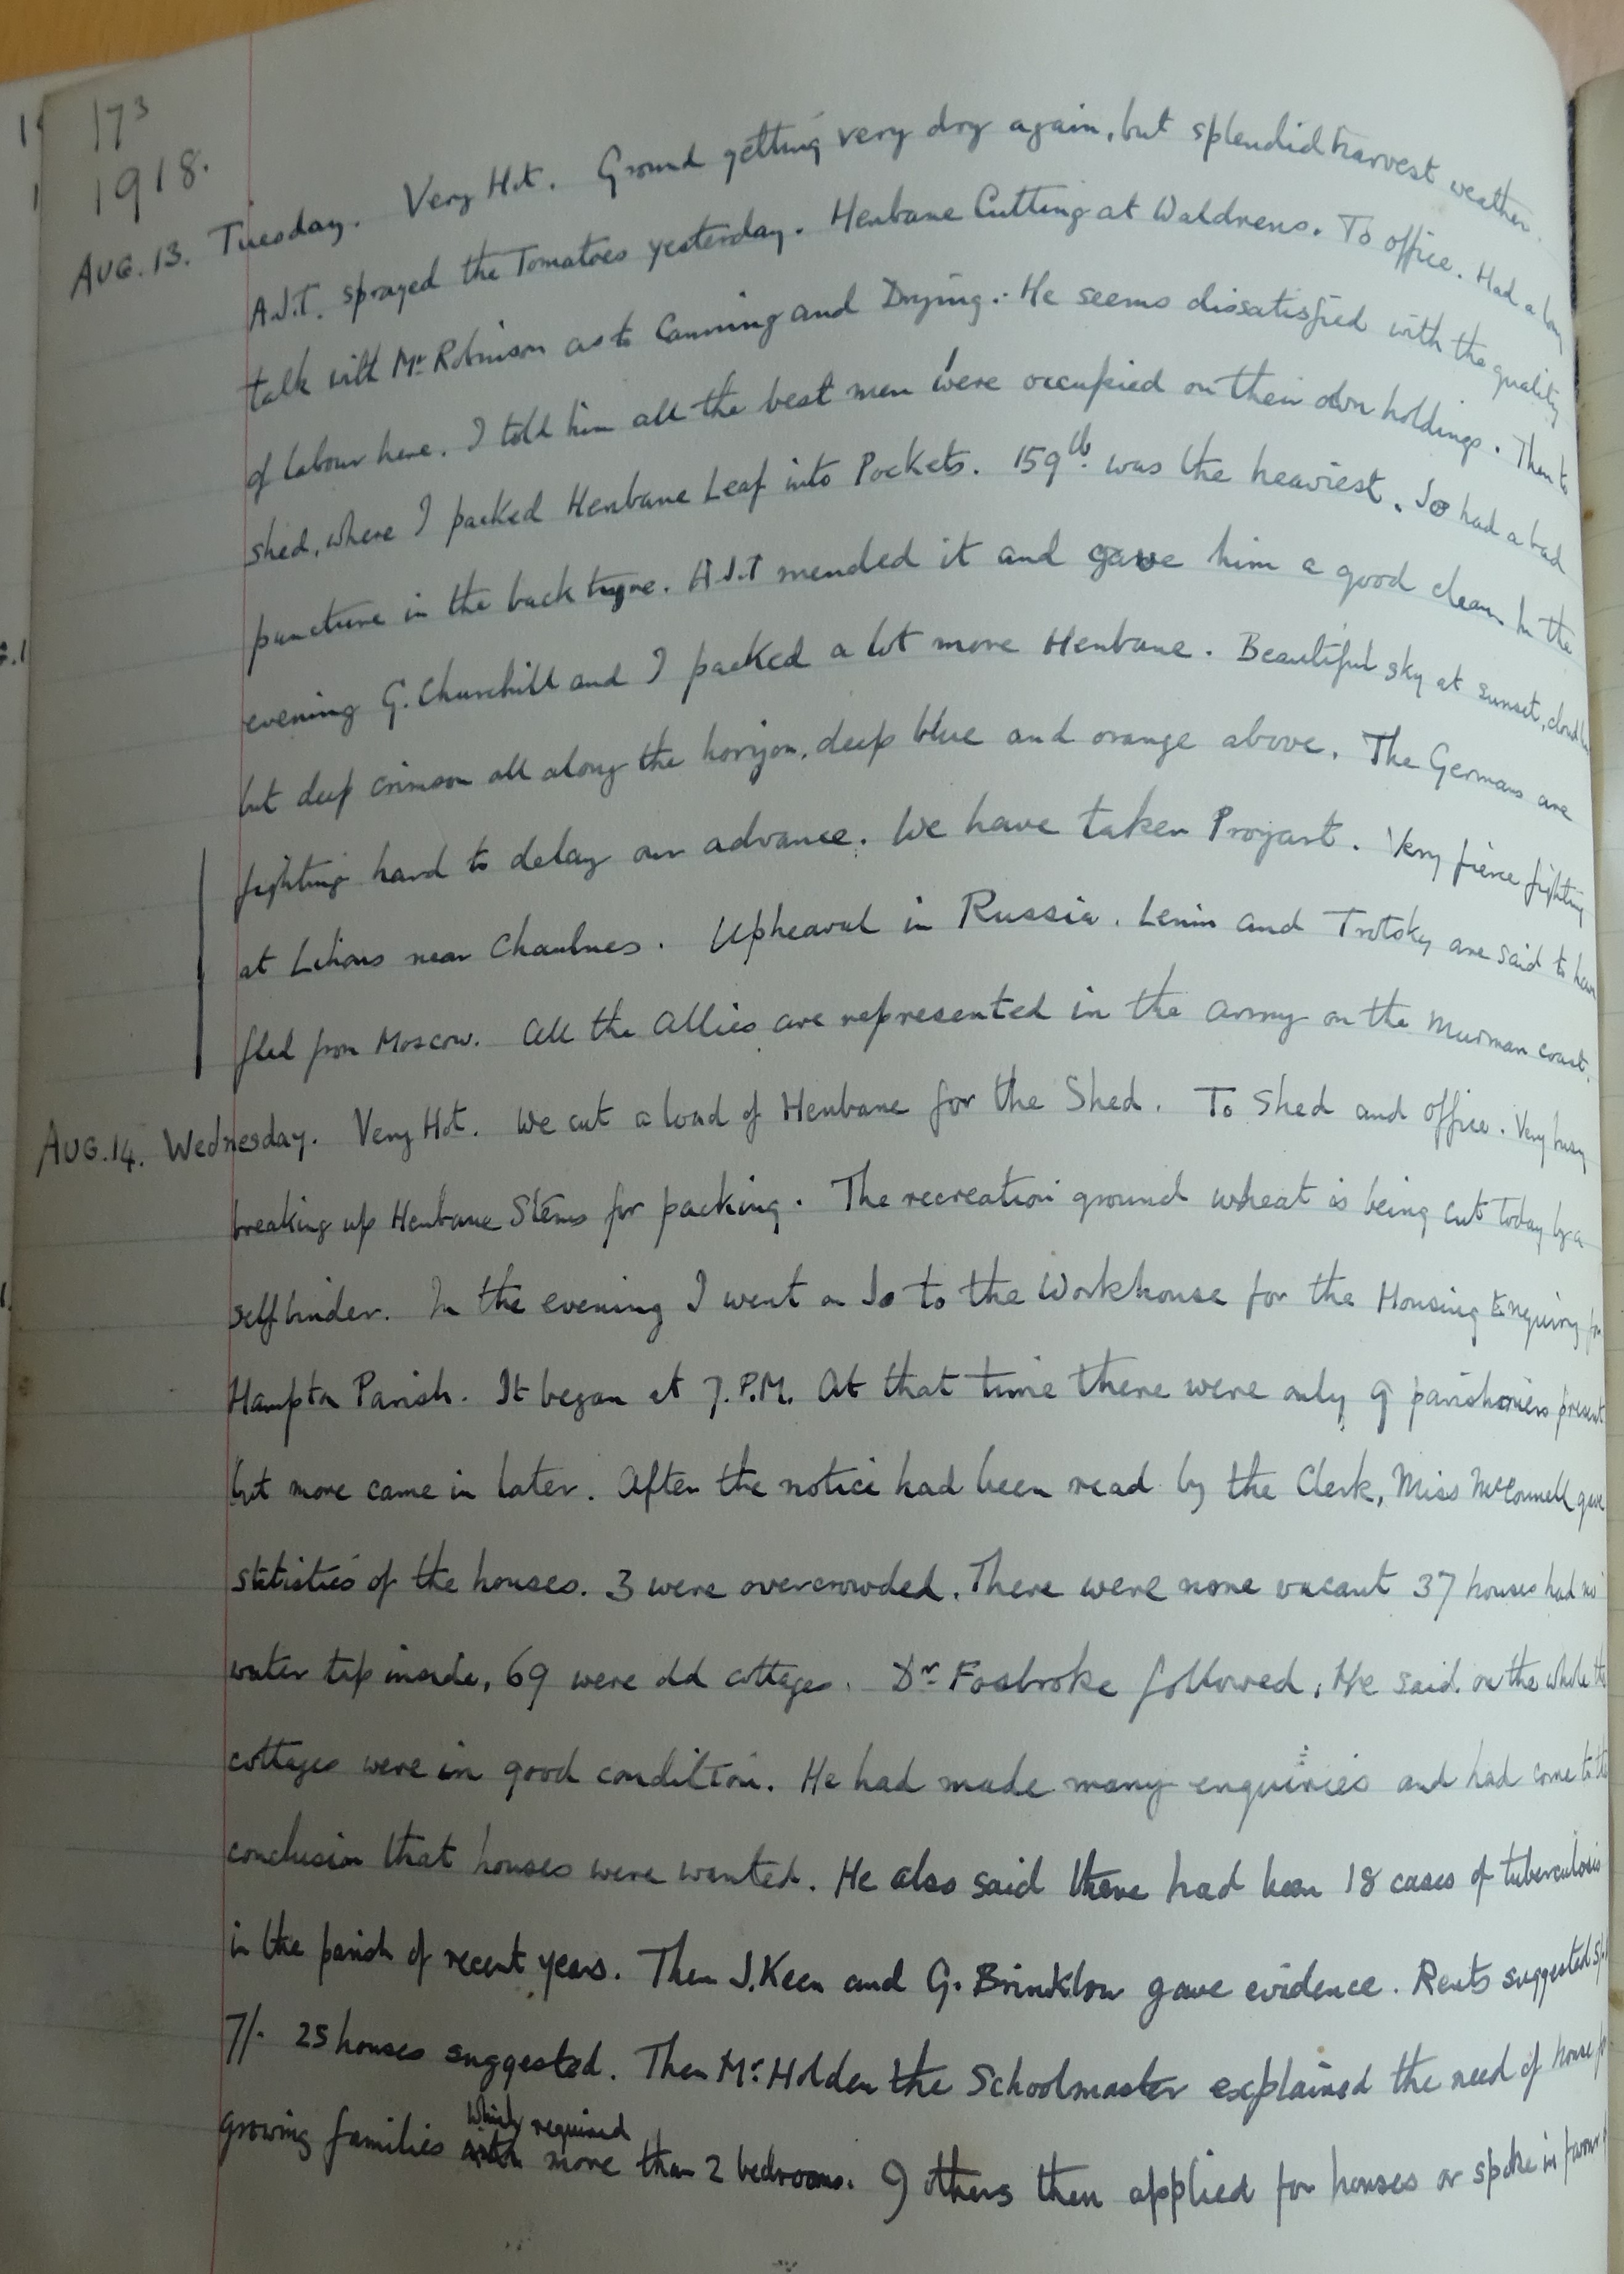 173
1918.
AUG. 13. Tuesday. Very Hot. Ground getting very dry again, but splendid harvest weather.
A.J.T. sprayed the Tomatoes yesterday. Henbane Cutting at Waldrens. To office. Had a long
talk with Mr Robinson as to Canning and Drying. He seems dissatisfied with the quality
of labour here. I told him all the best men were occupied on their own holdings. Then to
shed, where I packed Henbane Leaf into Pockets. 159 lb. was the heaviest. Jo had a bad
puncture in the back tyre. A.J.T mended it and gave him a good clean. In the
evening G. Churchill and I packed a lot more Henbane. Beautiful sky at sunset,
but deep crimson all along the horizon, deep blue and orange above. The Germans are
fighting hard to delay our advance. We have taken Proyart. Very fierce fighting
at Lihons near Chaulnes. Upheaval in Russia. Lenin and Trotsky are said to have
fled from Moscow. All the Allies are represented in the Army on the Murman coast.
AUG. 14. Wednesday. Very Hot. We cut a load of Henbane for the Shed. To Shed and office. Very busy
breaking up Henbane Stems for packing. The recreation ground wheat is being cut today by a
selfbinder. In the evening I went on Jo to the Workhouse for the Housing Enquiry for
Hampton Parish. It began at 7. P.M. At that time there were only 9 parishoners present
but more came in later. After the notice had been read by the Clerk, Miss McConnell gave
statistics of the houses. 3 were overcrowded. There were none vacant 37 houses had no
water tap inside, 69 were old cottages. Dr Fosbroke followed. He said on the whole the
cottages were in good condition. He had made many enquiries and had come to the
conclusion that houses were wanted. He also said there had been 18 cases of tuberculosis
in the parish of recent years. Then J. Keen and G. Brinklow gave evidence. Rents suggested
7/- 25 houses suggested. Then Mr. Holden the Schoolmaster explained the need of house for
growing families which required more than 2 bedrooms. 9 others then applied for houses or spoke in favour